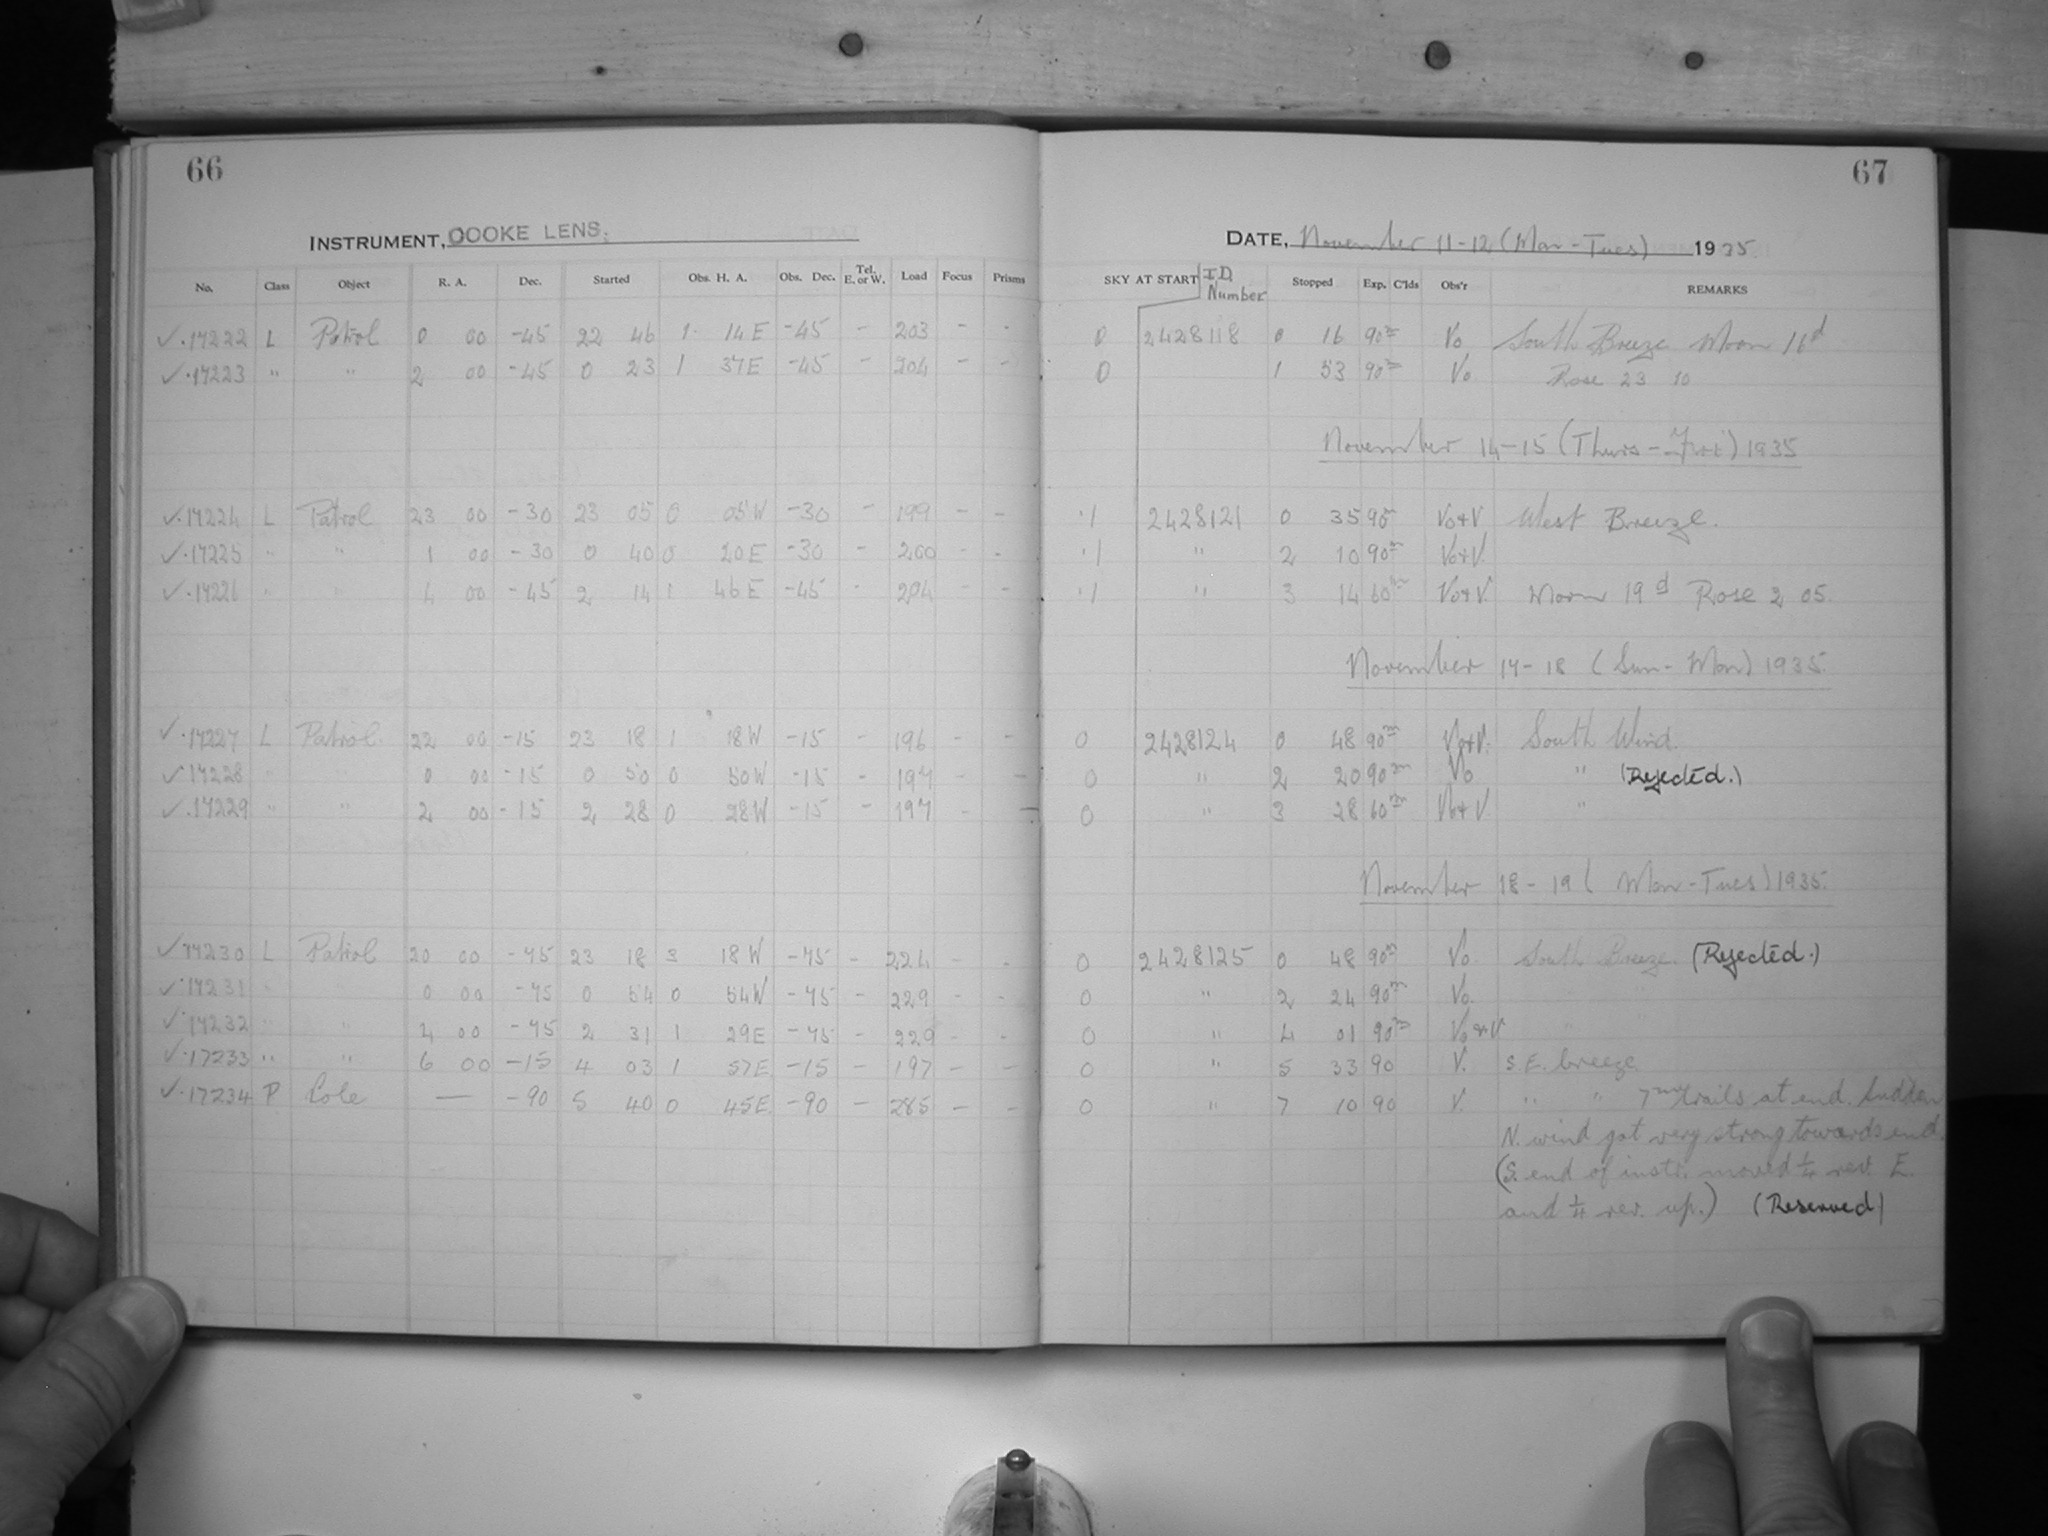 66
INSTRUMENT, COOKE LENS.
No. Class Object R. A. Dec. Started Obs. H. A. Obs. Dec. Tel. E. or W. Load Focus Prisms
✓·17222 L Patrol 0 00 -45 22 46 1 14E -45 - 203 - -
✓·17223 " " 2 00 -45 0 23 1 37E -45 - 204 - -
✓·17224 L Patrol 23 00 -30 23 05 0 05W -30 - 199 - -
✓·17225 " " 1 00 -30 0 40 0 20E -30 - 200 - -
✓·17226 " " 4 00 -45 2 14 1 46E -45 - 204 -
✓·17227 L Patrol 22 00 -15 23 18 1 18W -15 - 196 - -
✓17228 " " 0 00 -15 0 50 0 50W -15 - 197 - -
✓·17229 " " 2 00 -15 2 28 0 28W -15 - 197 - -
✓17230 L Patrol 20 00 -75 23 18 3 18W -75 - 224 - -
✓·17231 " 0 00 -75 0 54 0 54W -75 - 229 - -
✓·17232 " " 4 00 -75 2 31 1 29E -75 - 229 - -
✓·17233 " " 6 00 -15 4 03 1 57E -15 - 197 - -
✓·17234 P Pole — -90 5 40 0 45E -90 - 285 - -
67
DATE, November 11-12 (Mon-Tues) 1935.
SKY AT START I.D. Number Stopped Exp. C'lds Obs'r REMARKS
0 2428118 0 16 90m Vo South Breeze Moon 16d
0 1 53 90m Vo Rose 23 10
November 14-15 (Thurs-Fri) 1935
·1 2428121 0 35 90m Vo+V West Breeze.
·1 " 2 10 90m Vo+V.
·1 " 3 14 60m Vo+V. Moon 19d Rose 2 05.
November 17-18 (Sun-Mon) 1935.
0 2428124 0 48 90m Vo+V. South Wind.
0 " 2 20 90m Vo " (Rejected.)
0 " 3 28 60m Vo+V. "
November 18-19 (Mon-Tues) 1935.
0 2428125 0 48 90m Vo South Breeze. (Rejected.)
0 " 2 24 90m Vo.
0 " 4 01 90m Vo+V " "
0 " 5 33 90 V. S.E. breeze
0 " 7 10 90 V. " " 7m trails at end. Sudden
N. wind got very strong towards end.
(S. end of instr. moved ¼ rev. E.
and ¼ rev. up.) (Reserved)